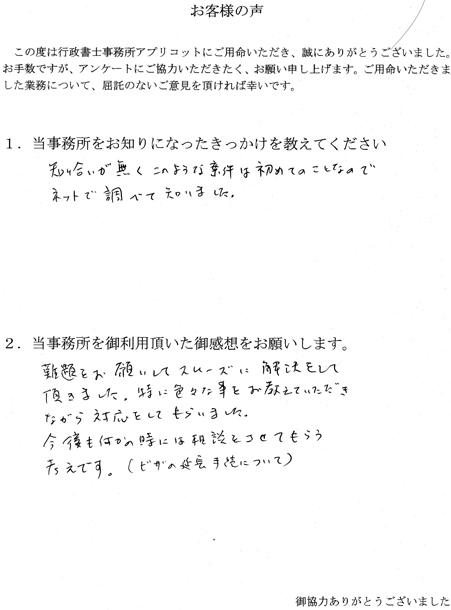 お客様の声
この度は行政書士事務所アプリコットにご用命いただき、誠にありがとうございました。
お手数ですが、アンケートにご協力いただきたく、お願い申し上げます。ご用命いただきま
した業務について、屈託のないご意見を頂ければ幸いです。
1．当事務所をお知りになったきっかけを教えてください
知り合いが無くこのような案件は初めてのことなので
ネットで調べて知りました。
2．当事務所を御利用頂いた御感想をお願いします。
難題をお願いしてスムーズに解決をして
頂きました。特に色々な事をお教えていただき
ながら対応をしてもらいました。
今後も何かの時には相談をさせてもらう
考えです。(ビザの延長手続について)
御協力ありがとうございました